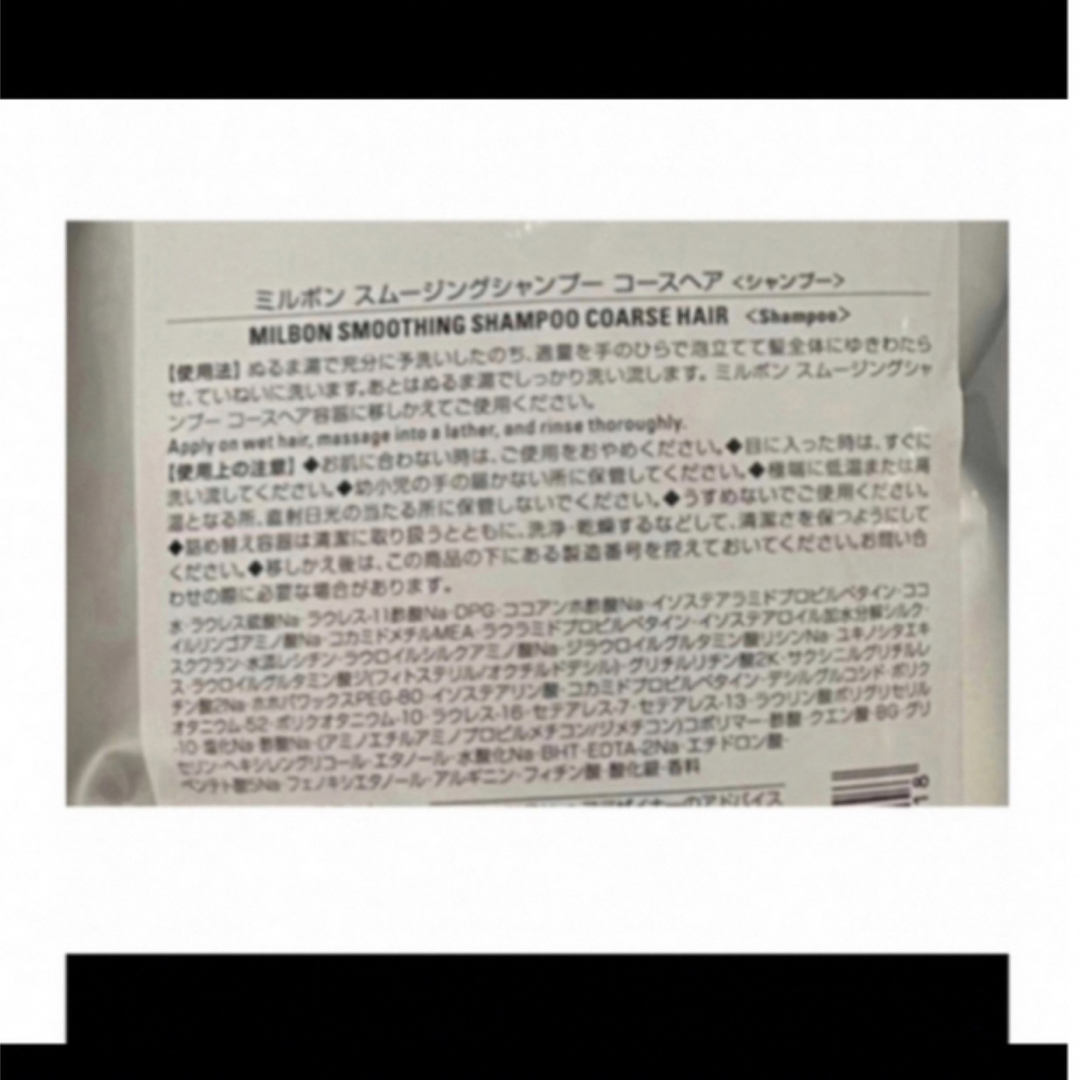 ミルボン スムージングシャンプー コースヘア <シャンプー>
MILBON SMOOTHING SHAMPOO COARSE HAIR <Shampoo>
【使用法】ぬるま湯で充分に予洗いしたのち、適量を手のひらで泡立てて髪全体にゆきわたら
せ、ていねいに洗います。あとはぬるま湯でしっかり洗い流します。ミルボン スムージングシャ
ンプー コースヘア容器に移しかえてご使用ください。
Apply on wet hair, massage into a lather, and rinse thoroughly.
【使用上の注意】◆お肌に合わない時は、ご使用をおやめください。◆目に入った時は、すぐに
洗い流してください。◆幼小児の手の届かない所に保管してください。◆極端に低温または高
温となる所、直射日光の当たる所に保管しないでください。◆うすめないでご使用ください。
◆詰め替え容器は清潔に取り扱うとともに、洗浄・乾燥するなどして、清潔さを保つようにして
ください。◆移しかえ後は、この商品の下にある製造番号を控えておいてください。お問い合
わせの際に必要な場合があります。
水・ラウレス硫酸Na・ラウレス-11酢酸Na・DPG・ココアンホ酢酸Na・イソステアラミドプロピルベタイン・ココ
イルリンゴアミノ酸Na・コカミドメチルMEA・ラウラミドプロピルベタイン・イソステアロイル加水分解シルク・
スクワラン・水添レシチン・ラウロイルシルクアミノ酸Na・ジラウロイルグルタミン酸リシンNa・ユキノシタエキ
ス・ラウロイルグルタミン酸ジ(フィトステリル/オクチルドデシル)・グリチルリチン酸2K・サクシニルグリチルレ
チン酸2Na・ホホバワックスPEG-80・イソステアリン酸・コカミドプロピルベタイン・デシルグルコシド・ポリク
オタニウム-52・ポリクオタニウム-10・ラウレス-16・セテアレス-7・セテアレス-13・ラウリン酸ポリグリセリル
-10・塩化Na・酢酸Na・(アミノエチルアミノプロピルメチコン/ジメチコン)コポリマー・酢酸・クエン酸・BG・グリ
セリン・ヘキシレングリコール・エタノール・水酸化Na・BHT・EDTA-2Na・エチドロン酸・
ペンテト酸5Na・フェノキシエタノール・アルギニン・フィチン酸・酸化銀・香料
デザイナーのアドバイス